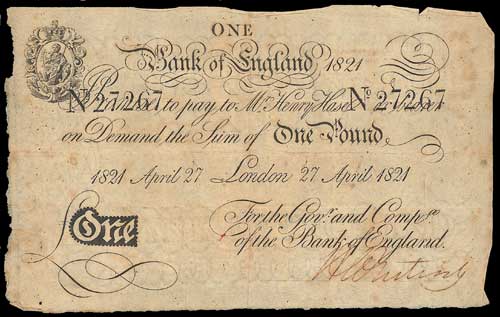 ONE
Bank of England 1821
No 27267 No 27267
I Promise to pay to Mr. Henry Hase or bearer
on Demand the Sum of One Pound
1821 April 27 London 27 April 1821
For the Govr. and Compa.
of the Bank of England.
£ One